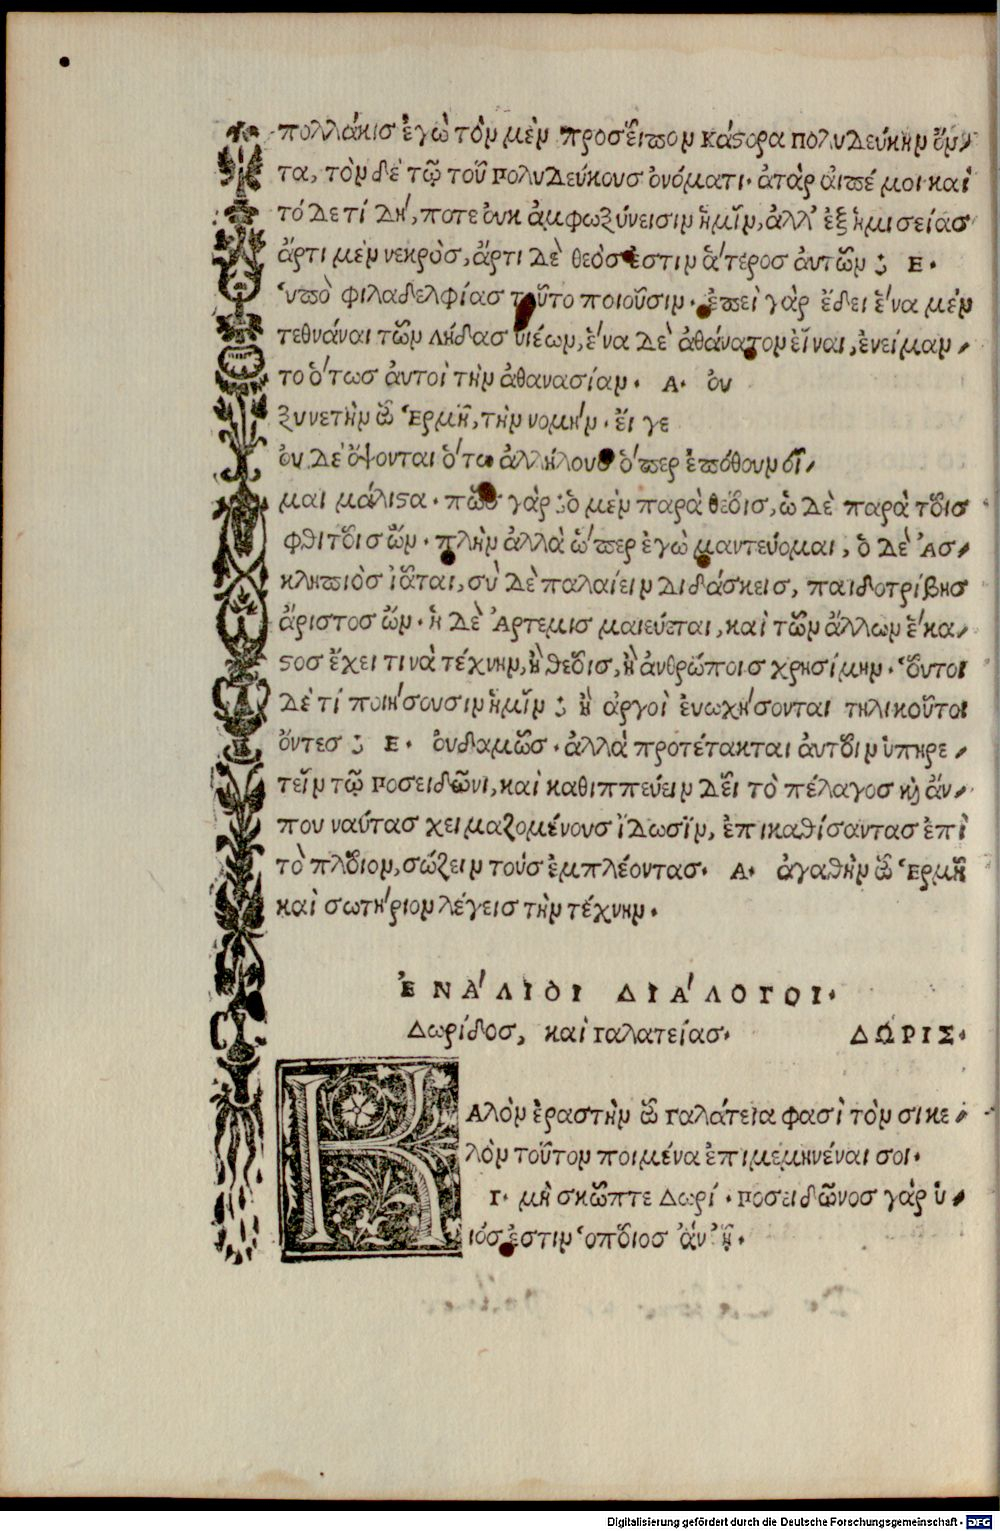 πολλάκις ἐγὼ τὸν μὲν προσεῖπον κάςορα πολυδεύκην ὄν-
τα, τὸν δὲ τῷ τοῦ πολυδεύκους ὀνόματι. ἀτὰρ ἀιπέ μοι καὶ
τό δε τί δή, ποτε ὀυκ ἀμφωξύνεισιν ἡμῖν, ἀλλ' ἐξ ἡμισείας
ἄρτι μὲν νεκρὸς, ἄρτι δὲ θεὸς ἐστιν ἅτέρος ἀυτῶν ; Ε.
ὑπὸ φιλαδελφίας τοῦτο ποιοῦσιν. ἐπεὶ γὰρ ἔδει ἕνα μὲν
τεθνάναι τῶν λήδας υἱέων, ἕνα δὲ ἀθάνατον εἶναι, ἐνείμαν-
το ὅτως ἀυτοὶ τὴν ἀθανασίαν. Α. ὀυ
ξυνετὴν ὦ Ἑρμῆ, τὴν νομήν. ἔι γε
ὀυ δὲ ὄψονται ὅτω ἀλλήλους ὅπερ ἐπόθουν ὀῖ-
μαι μάλιςα. πῶς γὰρ ; ὁ μὲν παρὰ θεοῖς, ὡ δὲ παρὰ τοῖς
φθιτοῖς ὤν. πλὴν ἀλλὰ ὥπερ ἐγὼ μαντεύομαι, ὁ δὲ Ἀσ-
κληπιὸς ἰᾶται, σὺ δὲ παλαίειν διδάσκεις, παιδοτρίβης
ἄριστος ὤν. ἡ δὲ Ἄρτεμις μαιεύεται, καὶ τῶν ἄλλων ἕκα-
ςος ἔχει τινὰ τέχνην, ἢ θεοῖς, ἢ ἀνθρώποις χρησίμην. οὗτοι
δὲ τί ποιήσουσιν ἡμῖν ; ἢ ἀργοὶ ἐυωχήσονται τηλικοῦτοι
ὄντες ; Ε. ὀυδαμῶς. ἀλλὰ προτέτακται ἀυτοῖν ὑπηρε-
τεῖν τῷ Ποσειδῶνι, καὶ καθιππεύειν δεῖ τὸ πέλαγος κὶ ἄν-
που ναύτας χειμαζομένους ἴδωσϊν, ἐπικαθίσαντας ἐπὶ
τὸ πλοῖον, σώζειν τοὺς ἐμπλέοντας. Α. ἀγαθὴν ὦ Ἑρμῆ
καὶ σωτήριον λέγεις τὴν τέχνην.
ἘΝΆΛΙΟΙ ΔΙΆΛΟΓΟΙ.
Δωρίδος, καὶ Γαλατείας. ΔΩΡΙΣ.
ΚΑλὸν ἐραστὴν ὦ Γαλάτεια φασὶ τὸν σικε-
λὸν τοῦτον ποιμένα ἐπιμεμηνέναι σοι.
Γ. μὴ σκῶπτε Δωρί. Ποσειδῶνος γὰρ ὑ-
ιός ἐστιν ὁποῖος ἂν ᾖ.
Digitalisierung gefördert durch die Deutsche Forschungsgemeinschaft - DFG